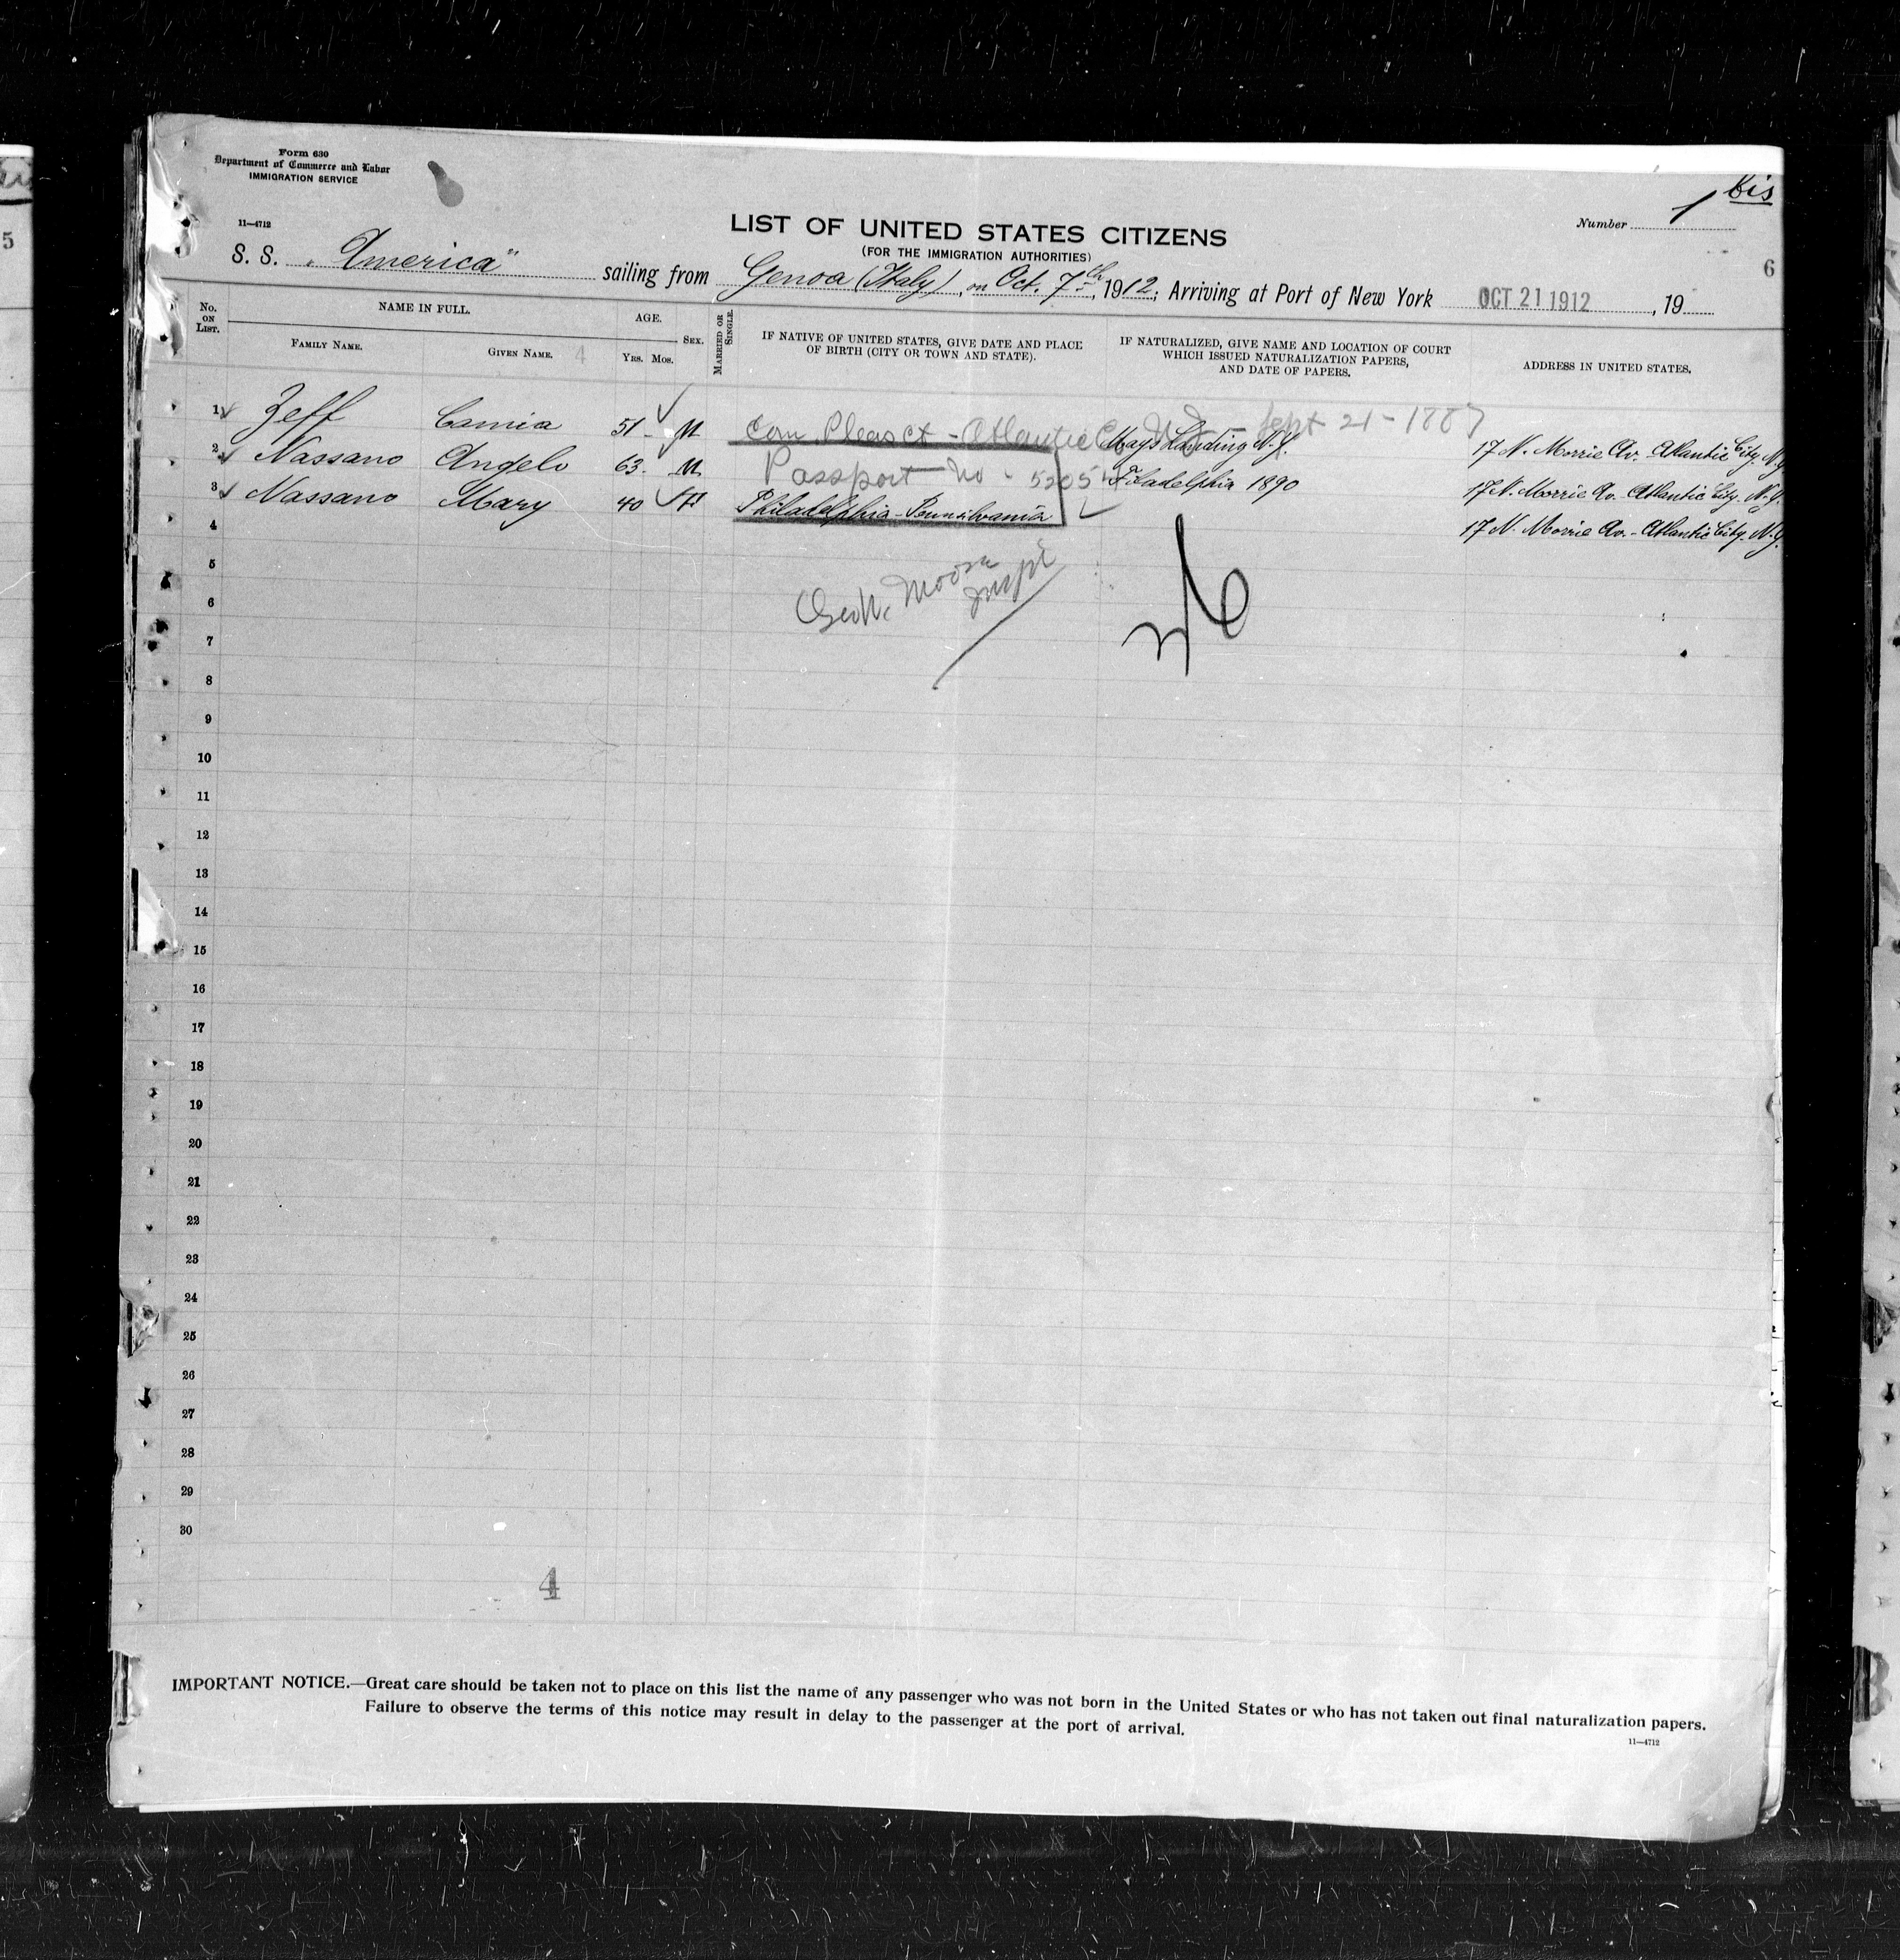 Form 630
Department of Commerce and Labor
IMMIGRATION SERVICE
11—4712
1 bis
Number
LIST OF UNITED STATES CITIZENS
(FOR THE IMMIGRATION AUTHORITIES)
6
S. S. „America" sailing from Genoa (Italy), on Oct. 7th, 1912; Arriving at Port of New York OCT 21 1912, 19
No. ON LIST. NAME IN FULL. AGE. SEX. MARRIED OR SINGLE. IF NATIVE OF UNITED STATES, GIVE DATE AND PLACE OF BIRTH (CITY OR TOWN AND STATE). IF NATURALIZED, GIVE NAME AND LOCATION OF COURT WHICH ISSUED NATURALIZATION PAPERS, AND DATE OF PAPERS. ADDRESS IN UNITED STATES.
FAMILY NAME. GIVEN NAME. 4 YRS. MOS.
1 Zeff Camia 51 - M Com Pleas Ct - Atlantic Co N J - Sept 21 - 1887 Mays Landing N.Y. 17 N. Morrie Av. Atlantic City. N.Y.
2 Nassano Angelo 63. M Passport No - 52054 Filadelphia 1890 17 N. Morrie Av. Atlantic City. N.Y.
3 Nassano Mary 40 F Philadelphia - Pennsilvania 17 N. Morrie Av. - Atlantic City. N.Y.
4
5
Moore
Inspt
6
7
8
9
10
11
12
13
14
15
16
17
18
19
20
21
22
23
24
25
26
27
28
29
30
4
IMPORTANT NOTICE.—Great care should be taken not to place on this list the name of any passenger who was not born in the United States or who has not taken out final naturalization papers.
Failure to observe the terms of this notice may result in delay to the passenger at the port of arrival.
11—4712
5